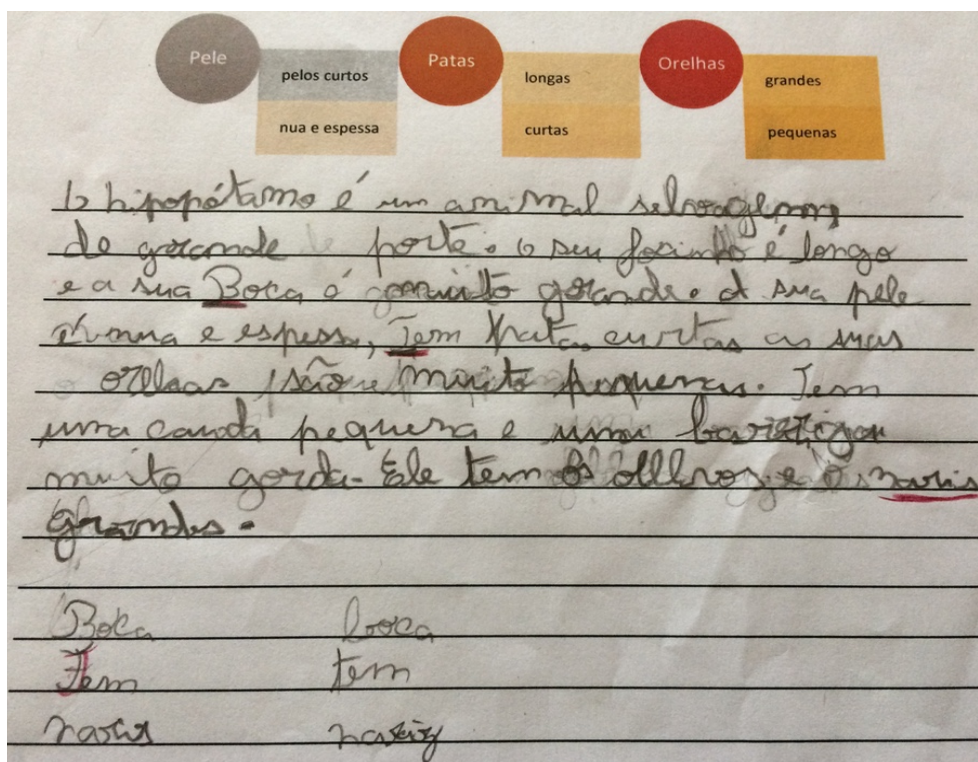 Pele Patas Orelhas
pelos curtos longas grandes
nua e espessa curtas pequenas
O hipopótamo é um animal selvagem
de grande porte. O seu focinho é longo
e a sua Boca é muito grande. A sua pele
é nua e espessa, Tem patas curtas as suas
orelhas são muito pequenas. Tem
uma cauda pequena e uma barriga
muito gorda. Ele tem os olhos e o naris
grandes.
Boca boca
Tem tem
naris nariz